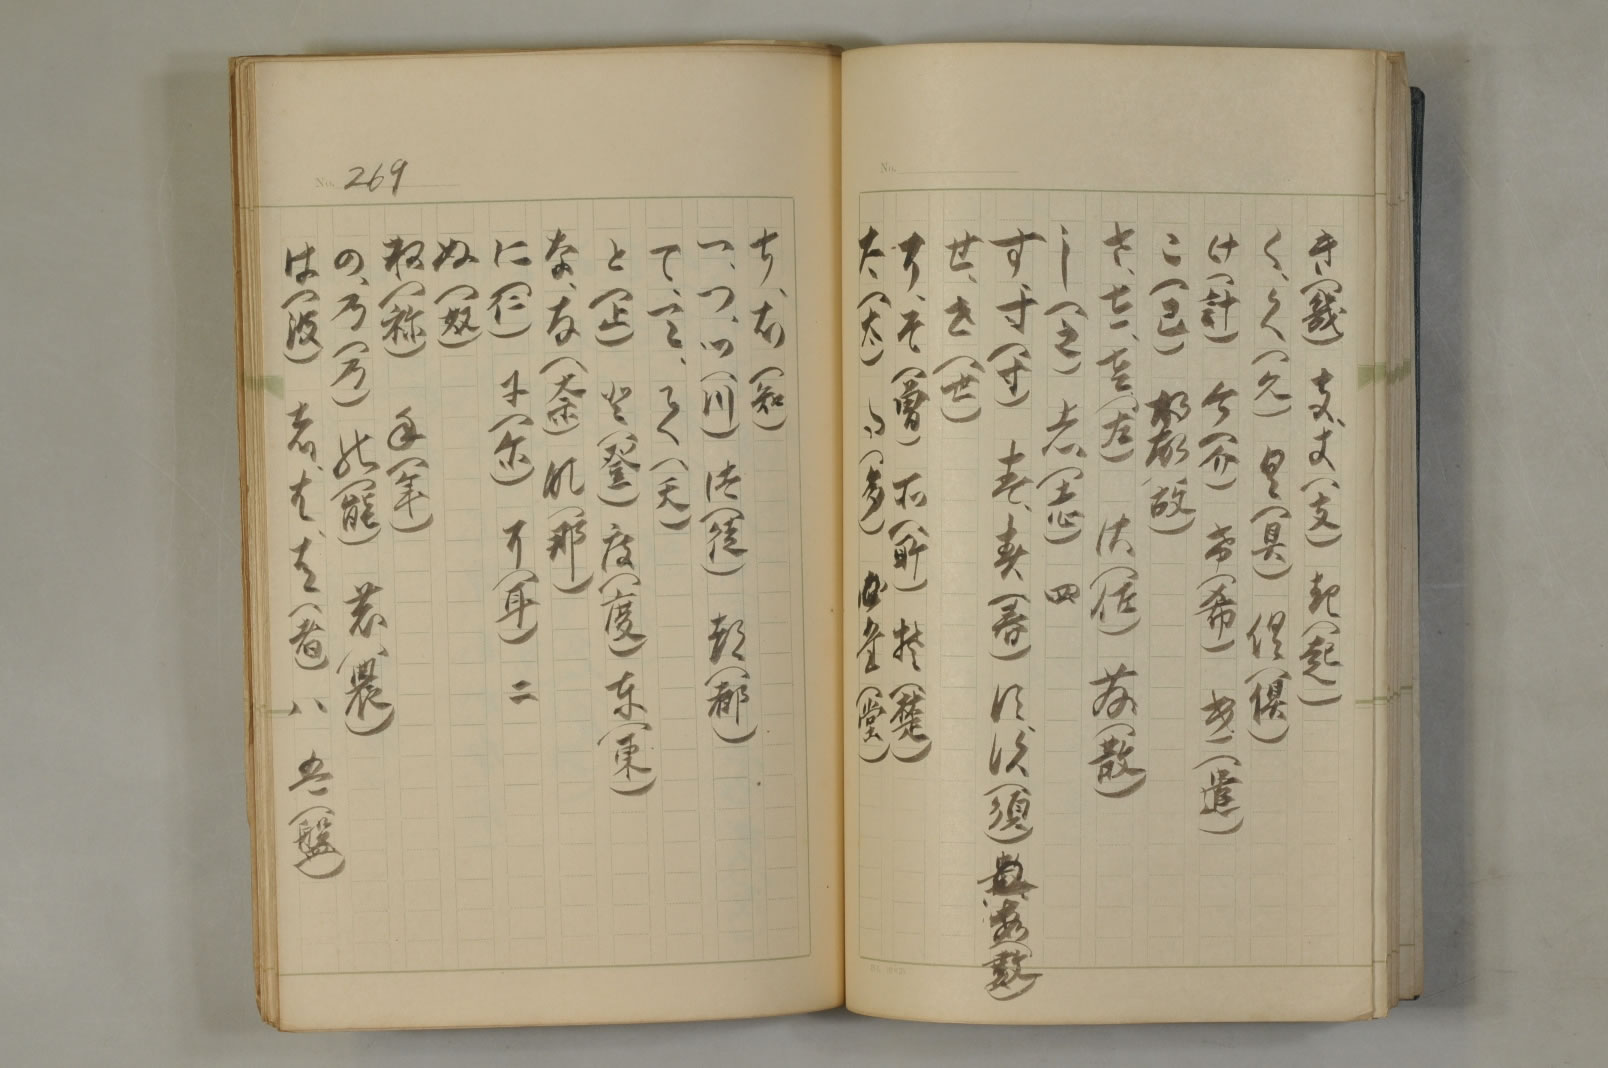 No.
き(幾) 支、(支) 起(起)
く、久(久) 具(具) 倶(倶)
け(計) 介(介) 希(希) (遣)
こ(己) 故故(故)
さ、(左) 佐(佐) 散(散)
し(之) 志(志) 四
す寸(寸) 春、春(春) 須、須(須) 数、数(数)
せ、世(世)
そ、そ(曽) 所(所) 楚(楚)
た、(太) (多) 堂(堂)
No. 269
ち、知(知)
つ、つ、川(川) 徒(徒) 都(都)
て、て、て(天)
と(止) 登(登) 度(度) 東(東)
な、な(奈) 那(那)
に(仁) 尓(尓) 耳(耳) 二
ぬ(奴)
ね(祢) 年(年)
の、乃(乃) 能(能) 農(農)
は(波) 者、者、者(者) ハ 盤(盤)